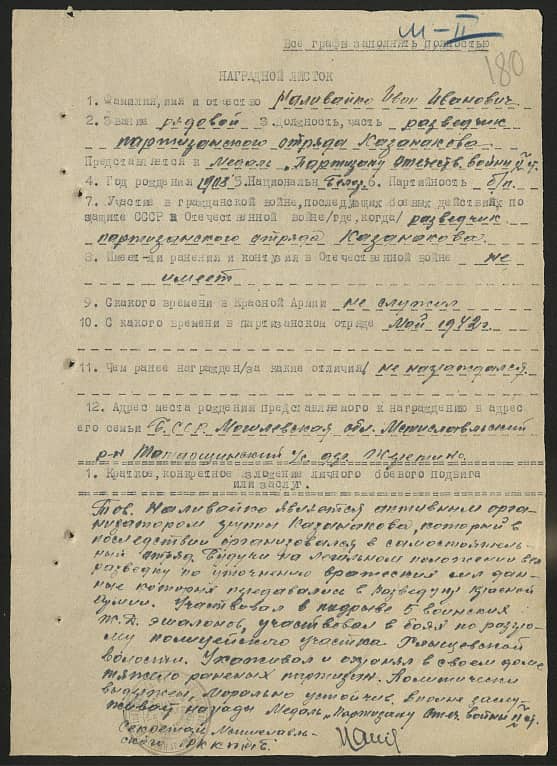 М-II
Все графы заполнять полностью
180
НАГРАДНОЙ ЛИСТОК
1. Фамилия, имя и отчество Наливайко Иван Иванович
2. Звание рядовой 3. Должность, часть разведчик
партизанского отряда Казанакова
Представляется к Медаль „Партизану Отечеств. войны" II ст.
4. Год рождения 1908 5. Национальн Белор. 6. Партийность б/п.
7. Участие в гражданской войне, последующих боевых действиях по
защите СССР и Отечественной войне/где, когда/ разведчик
партизанского отряда Казанакова.
8. Имеет-ли ранения и контузия в Отечественной войне не
имеет
9. Скакого времени в Красной Армии не служил
10. С какого времени в партизанском отряде Май 1942 г.
11. Чем ранее награжден/за какие отличия/ не награждался.
12. Адрес места рождения представляемого к награждению и адрес
его семьи Б.С.С.Р. Могилевская обл. Мстиславльский
р-н с/с дер.
1. Краткое, конкретное изложение личного боевого подвига
или заслуг.
Тов. Наливайко является активным орга-
низатором группы Казанакова, который в
последствии организовался в самостоятель-
ный отряд. Будучи на легальном положении вел
разведку по уточнению вражеских сил дан-
ные которыя предавались в Разведупр Красной
Армии. Участвовал в подрыве 5 воинских
ж.д. эшалонов, участвовал в боях по разгро-
му полицейского участка
волости. Ухаживал и охранял в своем доме
тяжело раненых партизан. Политически
выдержен, морально устойчив. Вполне заслу-
живает награды Медаль „Партизану Отеч. войны" II ст.
Секретарь Мстиславль-
ского РК КП/б/Б.